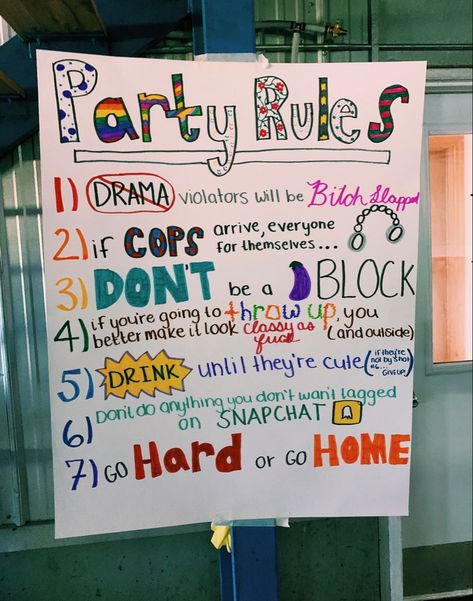 Party Rules
1) DRAMA violators will be Bitch Slapped
2) if COPS arrive, everyone
for themselves...
3) DON'T be a BLOCK
4) if you're going to throw up, you
better make it look classy as fuck (and outside)
5) DRINK until they're cute (if they're
not by shot
#6...
GIVE UP)
6) Don't do anything you don't want tagged
on SNAPCHAT
7) GO Hard or GO HOME